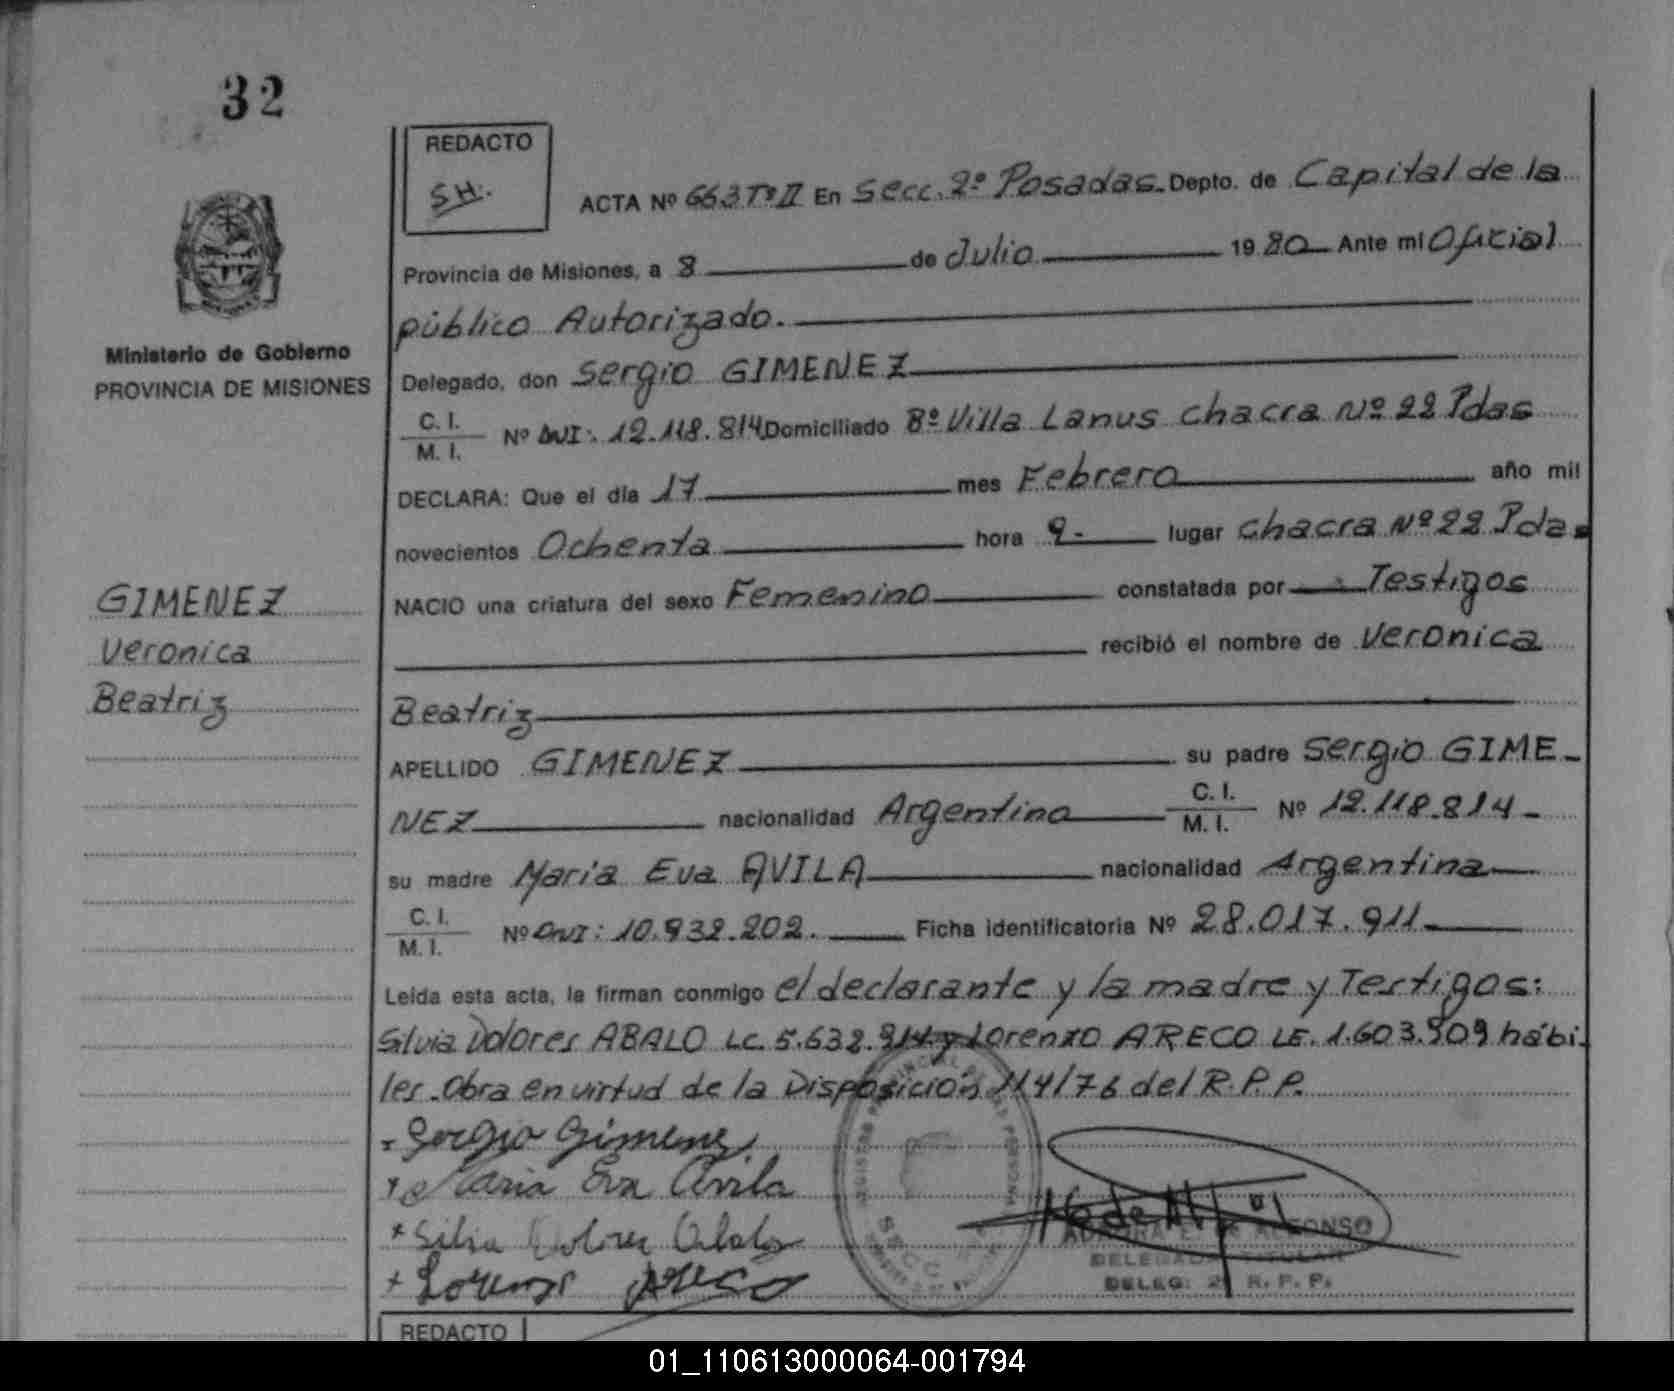 32
REDACTO
SH.
ACTA Nº 663 Tº II En Secc. 2º Posadas. Depto. de Capital de la
Provincia de Misiones, a 8 de Julio 19 80 Ante mi Oficial
público Autorizado.
Ministerio de Gobierno
PROVINCIA DE MISIONES
Delegado, don Sergio GIMENEZ
C. I.
M. I. Nº DNI: 12.118.814 Domiciliado Bº Villa Lanus chacra Nº 22 Pdas
DECLARA: Que el día 17 mes Febrero año mil
novecientos Ochenta hora 9- lugar chacra Nº 22 Pdas
GIMENEZ
Veronica
Beatriz
NACIO una criatura del sexo Femenino constatada por Testigos
recibió el nombre de Veronica
Beatriz
APELLIDO GIMENEZ su padre Sergio GIME-
NEZ nacionalidad Argentina C. I. M. I. Nº 12.118.814-
su madre Maria Eva AVILA nacionalidad Argentina
C. I.
M. I. Nº DNI: 10.932.202. Ficha identificatoria Nº 28.017.911
Leída esta acta, la firman conmigo el declarante y la madre y Testigos:
Silvia Dolores ABALO LC. 5.632.914 y Lorenzo ARECO LE. 1.603.909 hábi-
les. Obra en virtud de la Disposición 114/76 del R.P.P.
Sergio Gimenez
Maria Eva Avila
Silvia Dolores Abalo
Lorenzo Areco
SECC
ALFONSO
DELEGADA TITULAR
DELEG: 2ª R. P. P.
REDACTO
01_110613000064-001794